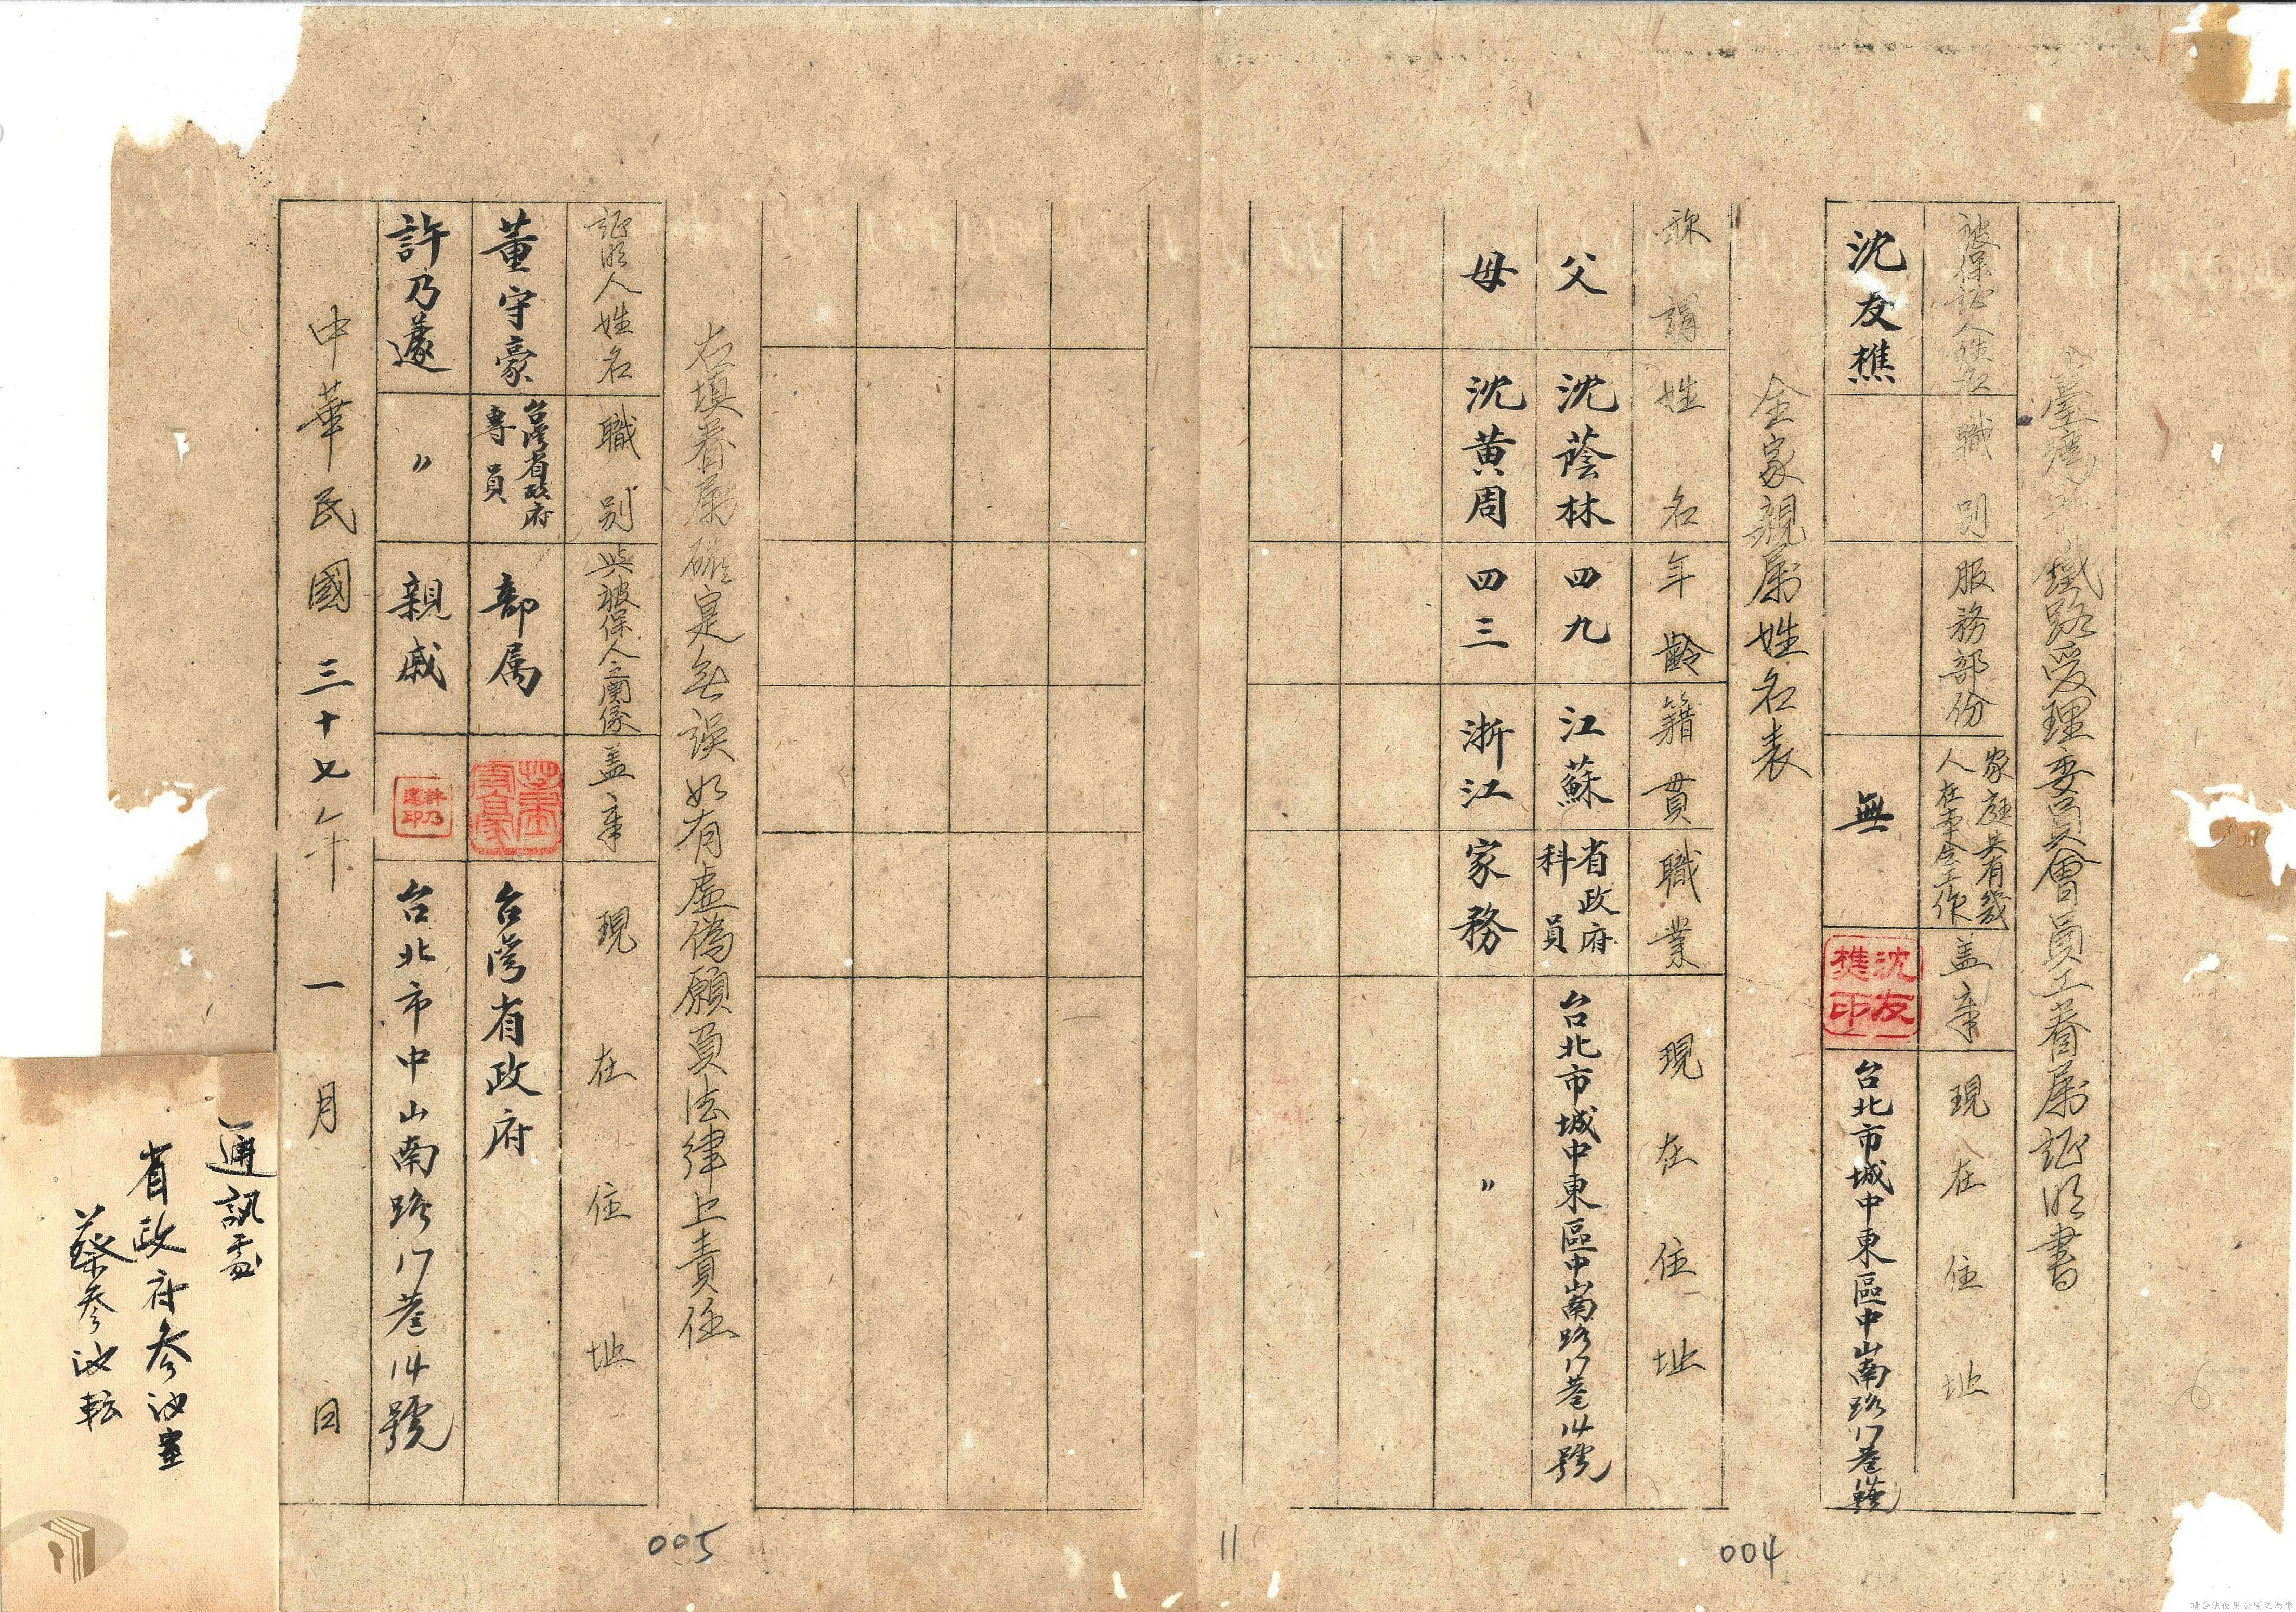 臺灣鐵路受理委員會員工眷屬証明書
被保証人姓名
職別
服務部份
家庭共有幾
人在本會工作
盖章
現在住址
沈友樵
無
沈友樵印
台北市城中東區中山南路17巷14號
全家親屬姓名表
称謂
姓名
年齡
籍貫
職業
現在住址
父
沈蔭林
四九
江蘇
省政府
科員
台北市城中東區中山南路17巷14號
母
沈黄周
四三
浙江
家務
〃
右填眷屬確寔無誤如有虛偽願負法律上責任
証明人姓名
職別
與被保人之關係
盖章
現在住址
董守豪
台灣省政府
專員
部属
台灣省政府
許乃蘧
〃
親戚
許乃蘧印
台北市中山南路17巷14號
中華民國三十七年一月日
通訊處
省政府参議室
蔡参議転
004
11
005
請合法使用公開之影像